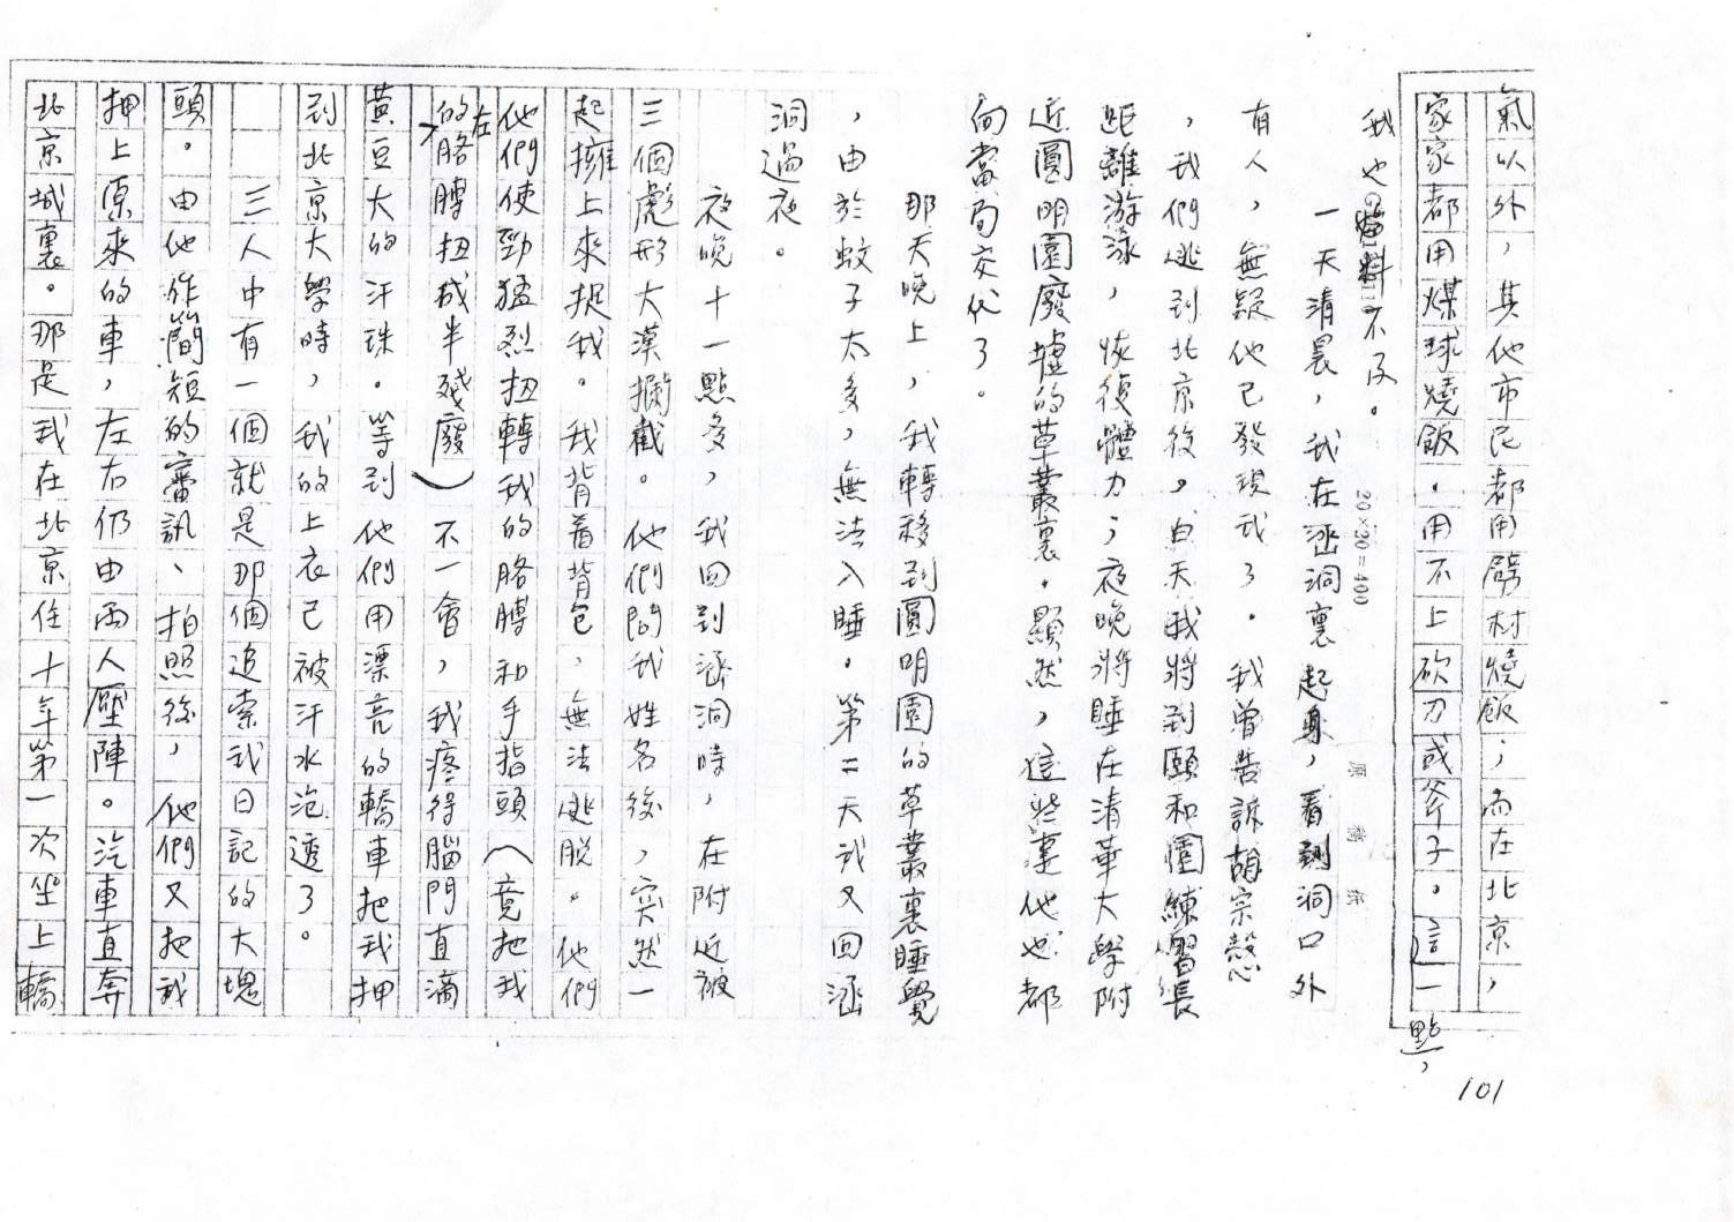 101
氣以外，其他市民都用劈材燒飯；而在北京，
家家都用煤球燒飯。用不上砍刀或斧子。這一點，
我也料不及。
20×20=400
一天清晨，我在涵洞裏起身，看到洞口外
有人，無疑他已發現我了。我曾告訴胡宗慤
，我們逃到北京後，白天我將到頤和園練習長
距離游泳，恢復體力；夜晚將睡在清華大學附
近圓明園廢墟的草叢裏。顯然，這些事他也都
向當局交代了。
那天晚上，我轉移到圓明園的草叢裏睡覺
，由於蚊子太多，無法入睡。第二天我又回涵
洞過夜。
夜晚十一點多，我回到涵洞時，在附近被
三個彪形大漢攔截。他們問我姓名後，突然一
起擁上來捉我。我背着背包，無法逃脫。他們
他們使勁猛烈扭轉我的胳膊和手指頭（竟把我
的左胳膊扭成半殘廢）不一會，我疼得腦門直滴
黃豆大的汗珠。等到他們用漂亮的轎車把我押
到北京大學時，我的上衣已被汗水泡透了。
三人中有一個就是那個追索我日記的大塊
頭。由他作簡短的審訊、拍照後，他們又把我
押上原來的車，左右仍由兩人壓陣。汽車直奔
北京城裏。那是我在北京住十年第一次坐上轎